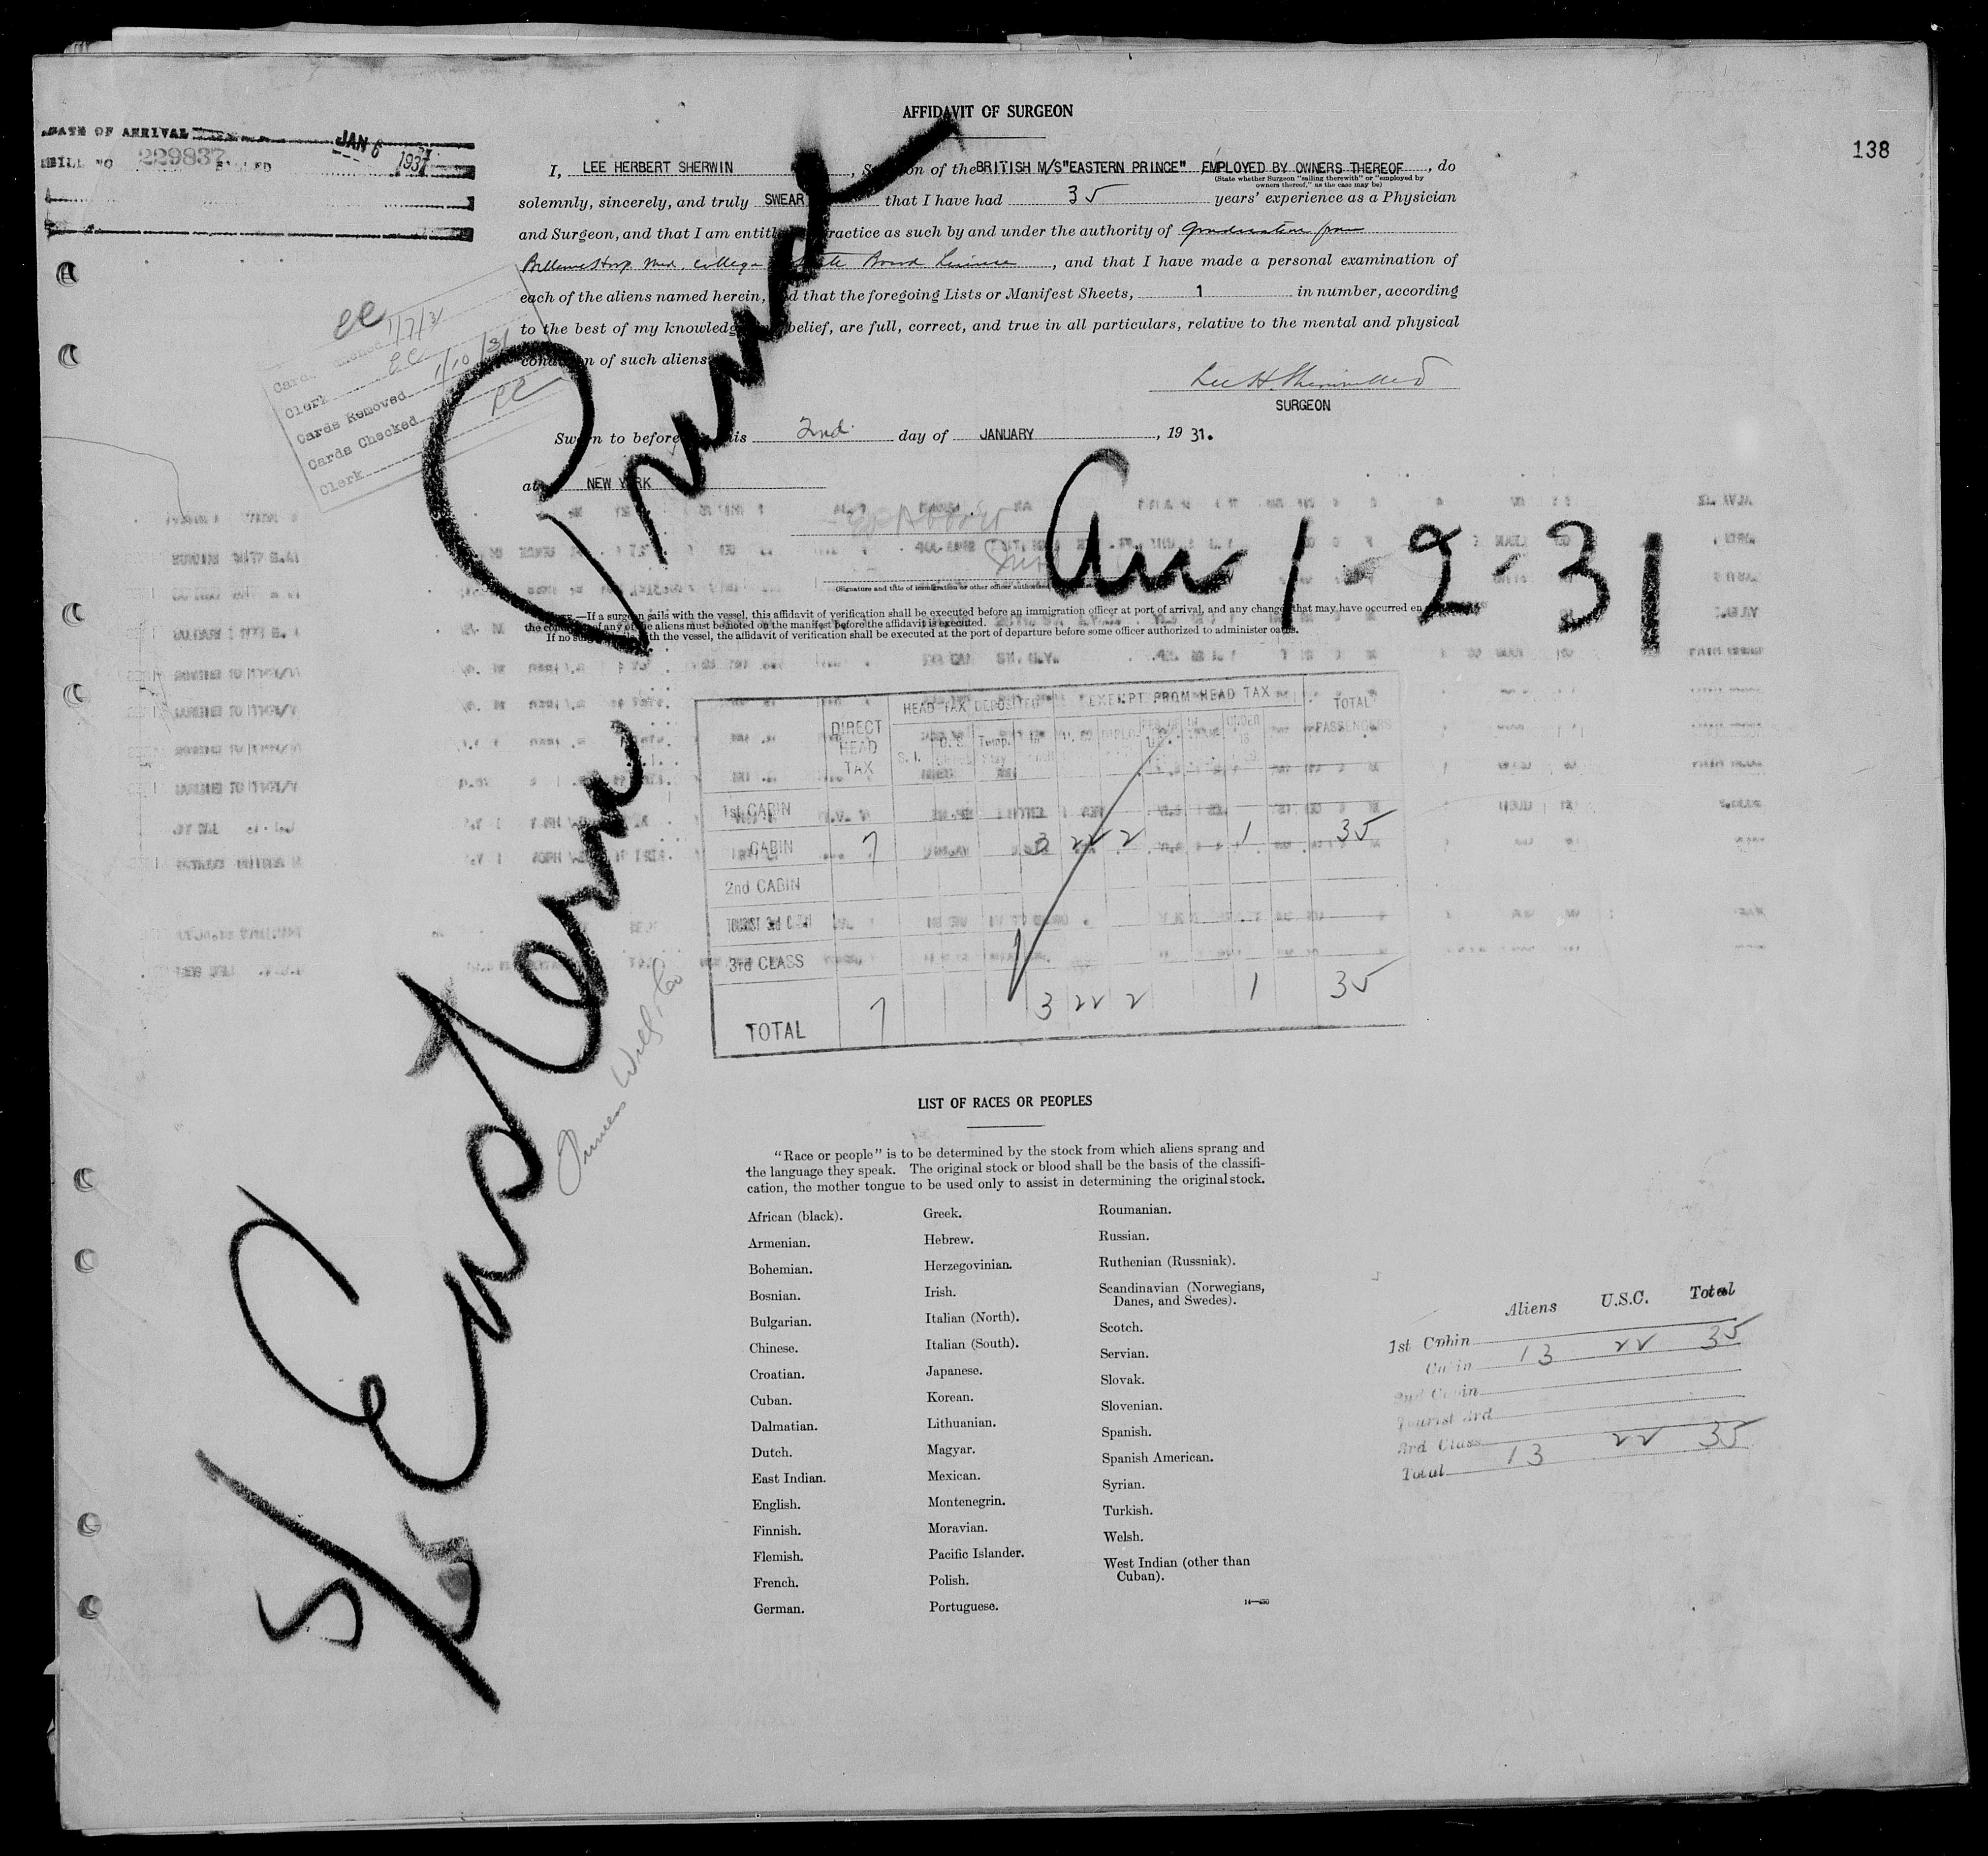 AFFIDAVIT OF SURGEON
138
DATE OF ARRIVAL JAN 6 1931
BILL NO 229837 BILLED
I, LEE HERBERT SHERWIN, Surgeon of the BRITISH M/S "EASTERN PRINCE" EMPLOYED BY OWNERS THEREOF, do
(State whether Surgeon "sailing therewith" or "employed by
owners thereof," as the case may be)
solemnly, sincerely, and truly SWEAR that I have had 35 years' experience as a Physician
and Surgeon, and that I am entitled to practice as such by and under the authority of graduation from
Bellevue Hosp. Med. College State Board License, and that I have made a personal examination of
each of the aliens named herein, and that the foregoing Lists or Manifest Sheets, 1 in number, according
to the best of my knowledge and belief, are full, correct, and true in all particulars, relative to the mental and physical
condition of such aliens.
SURGEON
Sworn to before me this 2nd day of JANUARY, 19 31.
at NEW YORK
1/7/31
Clerk
Cards Removed 1/10/31
Cards Checked
Clerk
(Signature and title of immigration or other officer authorized
NOTE.—If a surgeon sails with the vessel, this affidavit of verification shall be executed before an immigration officer at port of arrival, and any changes that may have occurred en
the condition of any of the aliens must be noted on the manifest before the affidavit is executed.
If no surgeon sails with the vessel, the affidavit of verification shall be executed at the port of departure before some officer authorized to administer oaths.
S/S Eastern Prince
Arr 1-2-31
DIRECT HEAD TAX
HEAD TAX DEPOSITED
EXEMPT FROM HEAD TAX
TOTAL PASSENGERS
1st CABIN
CABIN 7 3 22 2 1 35
2nd CABIN
TOURIST 3rd CABIN
3rd CLASS
TOTAL 7 3 22 2 1 35
LIST OF RACES OR PEOPLES
"Race or people" is to be determined by the stock from which aliens sprang and
the language they speak. The original stock or blood shall be the basis of the classifi-
cation, the mother tongue to be used only to assist in determining the original stock.
African (black).
Armenian.
Bohemian.
Bosnian.
Bulgarian.
Chinese.
Croatian.
Cuban.
Dalmatian.
Dutch.
East Indian.
English.
Finnish.
Flemish.
French.
German.
Greek.
Hebrew.
Herzegovinian.
Irish.
Italian (North).
Italian (South).
Japanese.
Korean.
Lithuanian.
Magyar.
Mexican.
Montenegrin.
Moravian.
Pacific Islander.
Polish.
Portuguese.
Roumanian.
Russian.
Ruthenian (Russniak).
Scandinavian (Norwegians,
Danes, and Swedes).
Scotch.
Servian.
Slovak.
Slovenian.
Spanish.
Spanish American.
Syrian.
Turkish.
Welsh.
West Indian (other than
Cuban).
Aliens U.S.C. Total
1st Cabin
Cabin 13 22 35
2nd Cabin
Tourist 3rd
3rd Class
Total 13 22 35